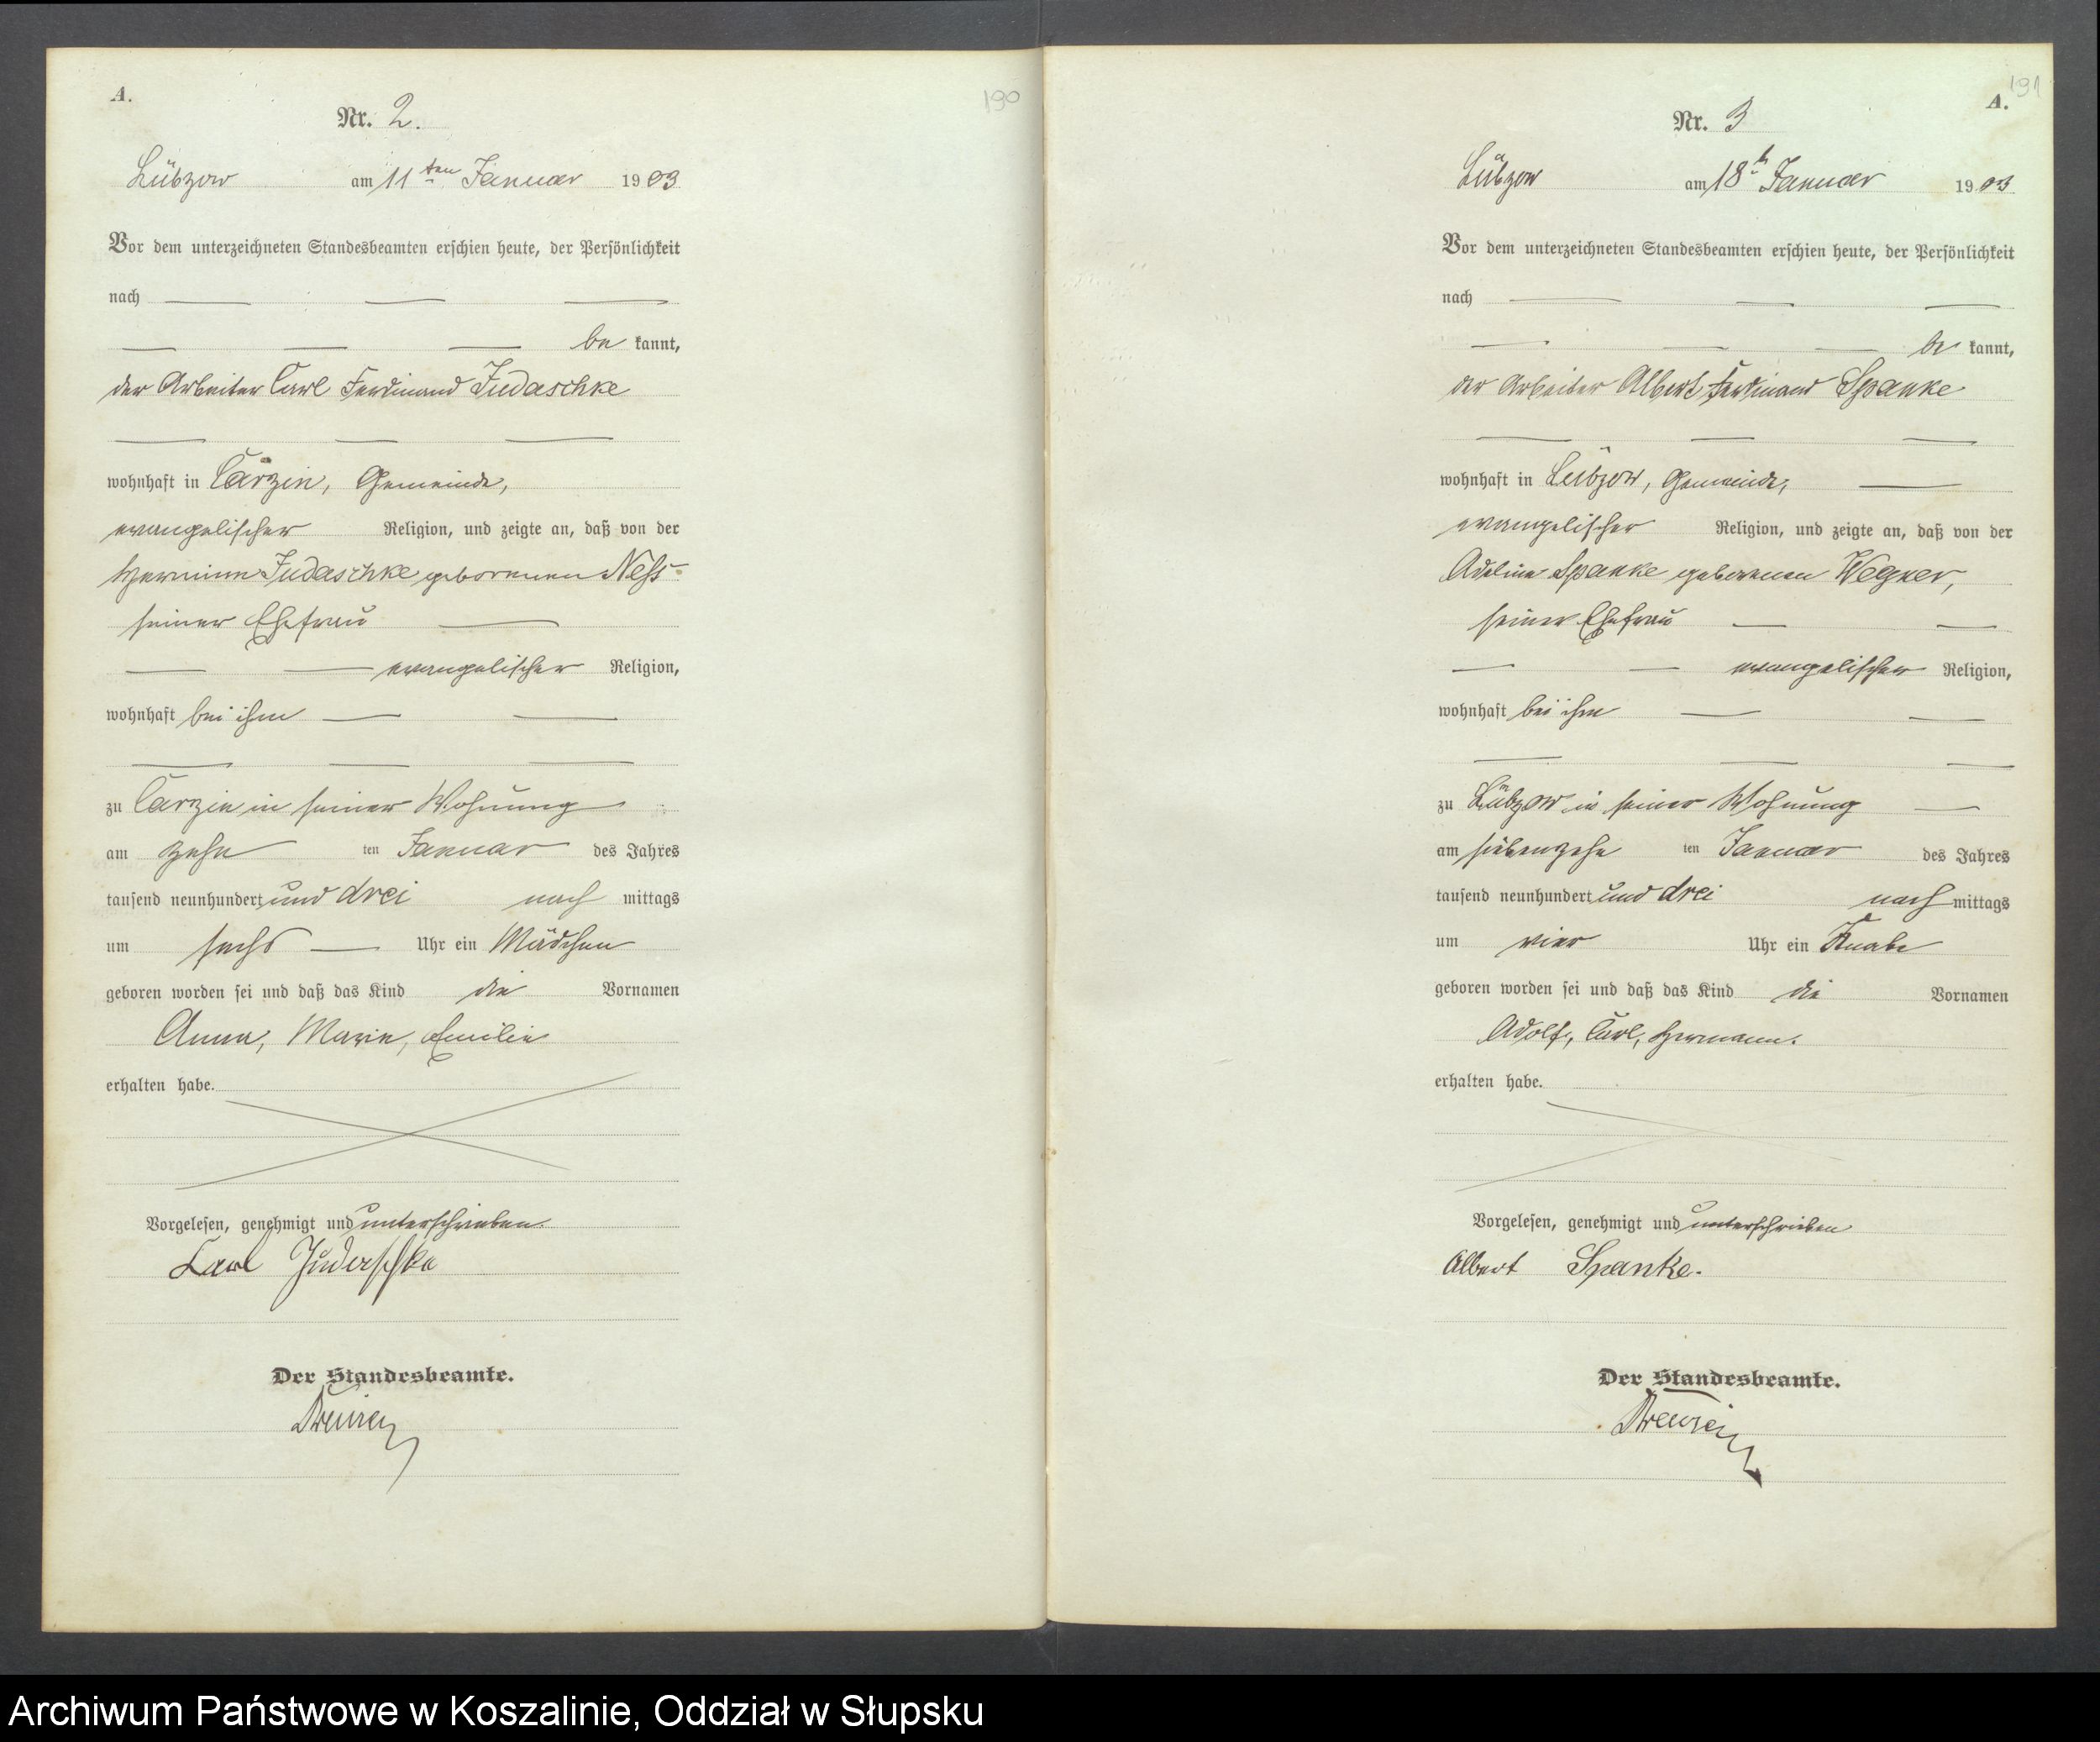 A.
190
Nr. 2.
Lübzow am 11ten Januar 1903
Vor dem unterzeichneten Standesbeamten erschien heute, der Persönlichkeit
nach
be kannt,
der Arbeiter Carl Ferdinand Judaschke
wohnhaft in Carzin, Gemeinde,
evangelischer Religion, und zeigte an, daß von der
Hermine Judaschke geborenen Ness
seiner Ehefrau
evangelischer Religion,
wohnhaft bei ihm
zu Carzin in seiner Wohnung
am zehn ten Januar des Jahres
tausend neunhundert und drei nach mittags
um sechs Uhr ein Mädchen
geboren worden sei und daß das Kind die Vornamen
Anna, Marie, Emilie
erhalten habe.
Vorgelesen, genehmigt und unterschrieben
Carl Judaschke
Der Standesbeamte.
191
A.
Nr. 3
Lübzow am 18t Januar 1903
Vor dem unterzeichneten Standesbeamten erschien heute, der Persönlichkeit
nach
be kannt,
der Arbeiter Albert Ferdinand Spanke
wohnhaft in Lübzow, Gemeinde,
evangelischer Religion, und zeigte an, daß von der
Adeline Spanke geborenen Wegner,
seiner Ehefrau
evangelischer Religion,
wohnhaft bei ihm
zu Lübzow in seiner Wohnung
am siebenzehn ten Januar des Jahres
tausend neunhundert und drei nach mittags
um vier Uhr ein Knabe
geboren worden sei und daß das Kind die Vornamen
Adolf, Carl, Hermann.
erhalten habe.
Vorgelesen, genehmigt und unterschrieben
Albert Spanke.
Der Standesbeamte.
Archiwum Państwowe w Koszalinie, Oddział w Słupsku